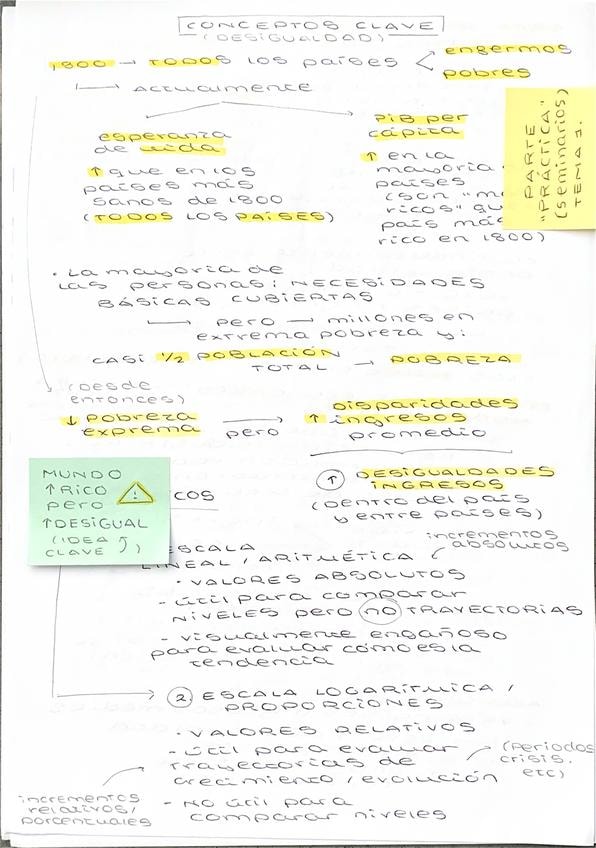 CONCEPTOS CLAVE
(DESIGUALDAD)
1800 → TODOS LOS países < engermos
pobres
→ ACTUALMENTE
esperanza
de vida
↑ que en los
países más
sanos de 1800
(TODOS LOS PAÍSES)
PIB per
cápita
↑ en la
mayoría
países
(son "m
ricos" qu
país má
rico en 1800)
PARTE
"PRÁCTICA"
(seminarios)
TEMA 1.
· La mayoría de
las personas: NECESIDADES
BÁSICAS CUBIERTAS
→ pero → millones en
extrema pobreza y:
CASI 1/2 POBLACIÓN
TOTAL → POBREZA
(DESDE
ENTONCES)
↓ pobreza
exprema → pero
↑ disparidades
ingresos
promedio
↑ DESIGUALDADES
INGRESOS
(dentro del país
y entre países)
MUNDO
↑ RICO
pero
↑ DESIGUAL
(IDEA
CLAVE ⤴)
!
ICOS
ESCALA
LINEAL / ARITMÉTICA
incrementos
absolutos
· VALORES ABSOLUTOS
- útil para comparar
NIVELES pero no TRAYECTORIAS
- visualmente engañoso
para evaluar cómo es la
tendencia
2. ESCALA LOGARÍTMICA /
PROPORCIONES
· VALORES RELATIVOS
- útil para evaluar
trayectorias de
crecimiento / evolución
(Periodos
crisis.
etc)
incrementos
relativos/
porcentuales
- No útil para
comparar niveles